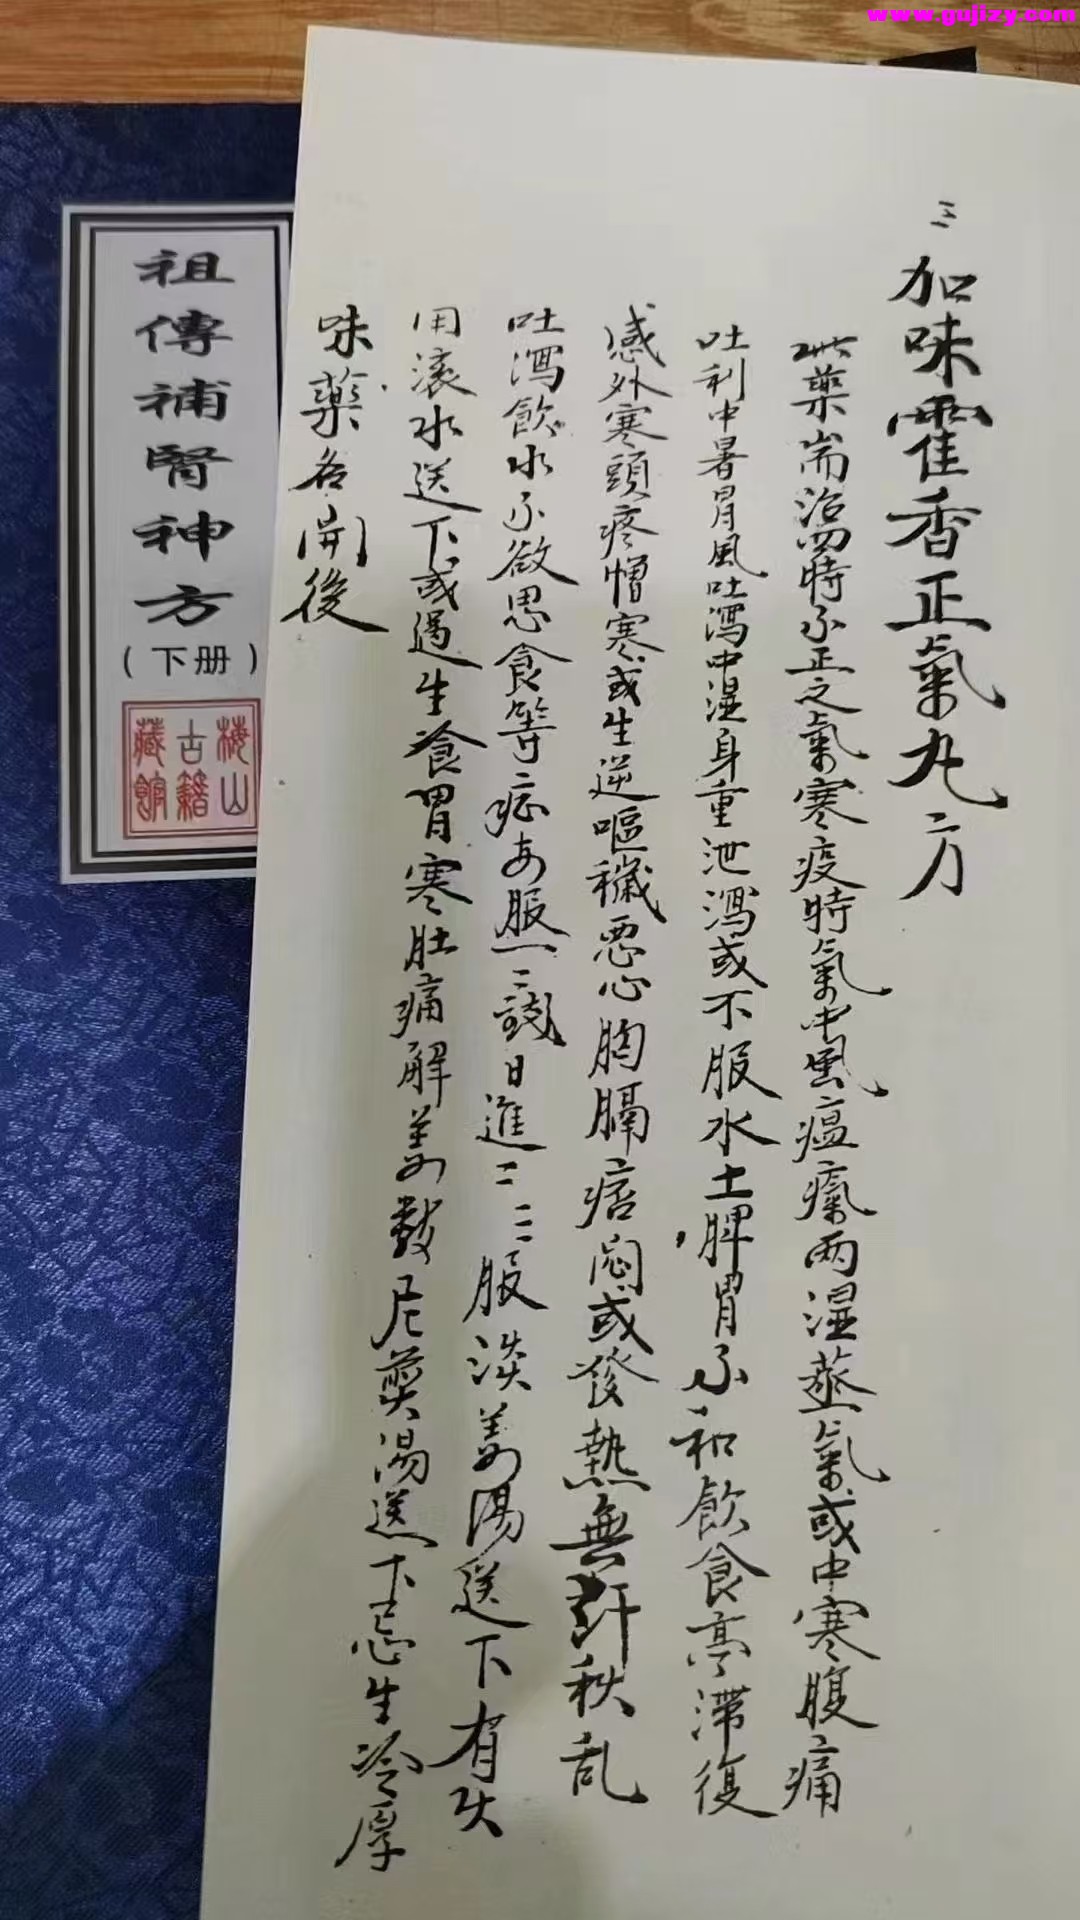 www.gujizy.com
三
加味霍香正氣丸方
此藥耑治四時不正之氣寒疫時氣中風瘟瘴两湿蒸氣或中寒腹痛
吐利中暑冒風吐瀉中湿身重泄瀉或不服水土脾胃不和飲食亭滞復
感外寒頭疼憎寒或生逆嘔穢悪心胸膈痞闷或發熱無汗秋乱
吐瀉飲水不欲思食等症每服二錢日進二三服淡姜湯送下有火
用滚水送下或過生冷胃寒肚痛解姜湯送下忌生冷厚
味藥各開後
祖傳補腎神方
（下册）
梅山古籍藏館